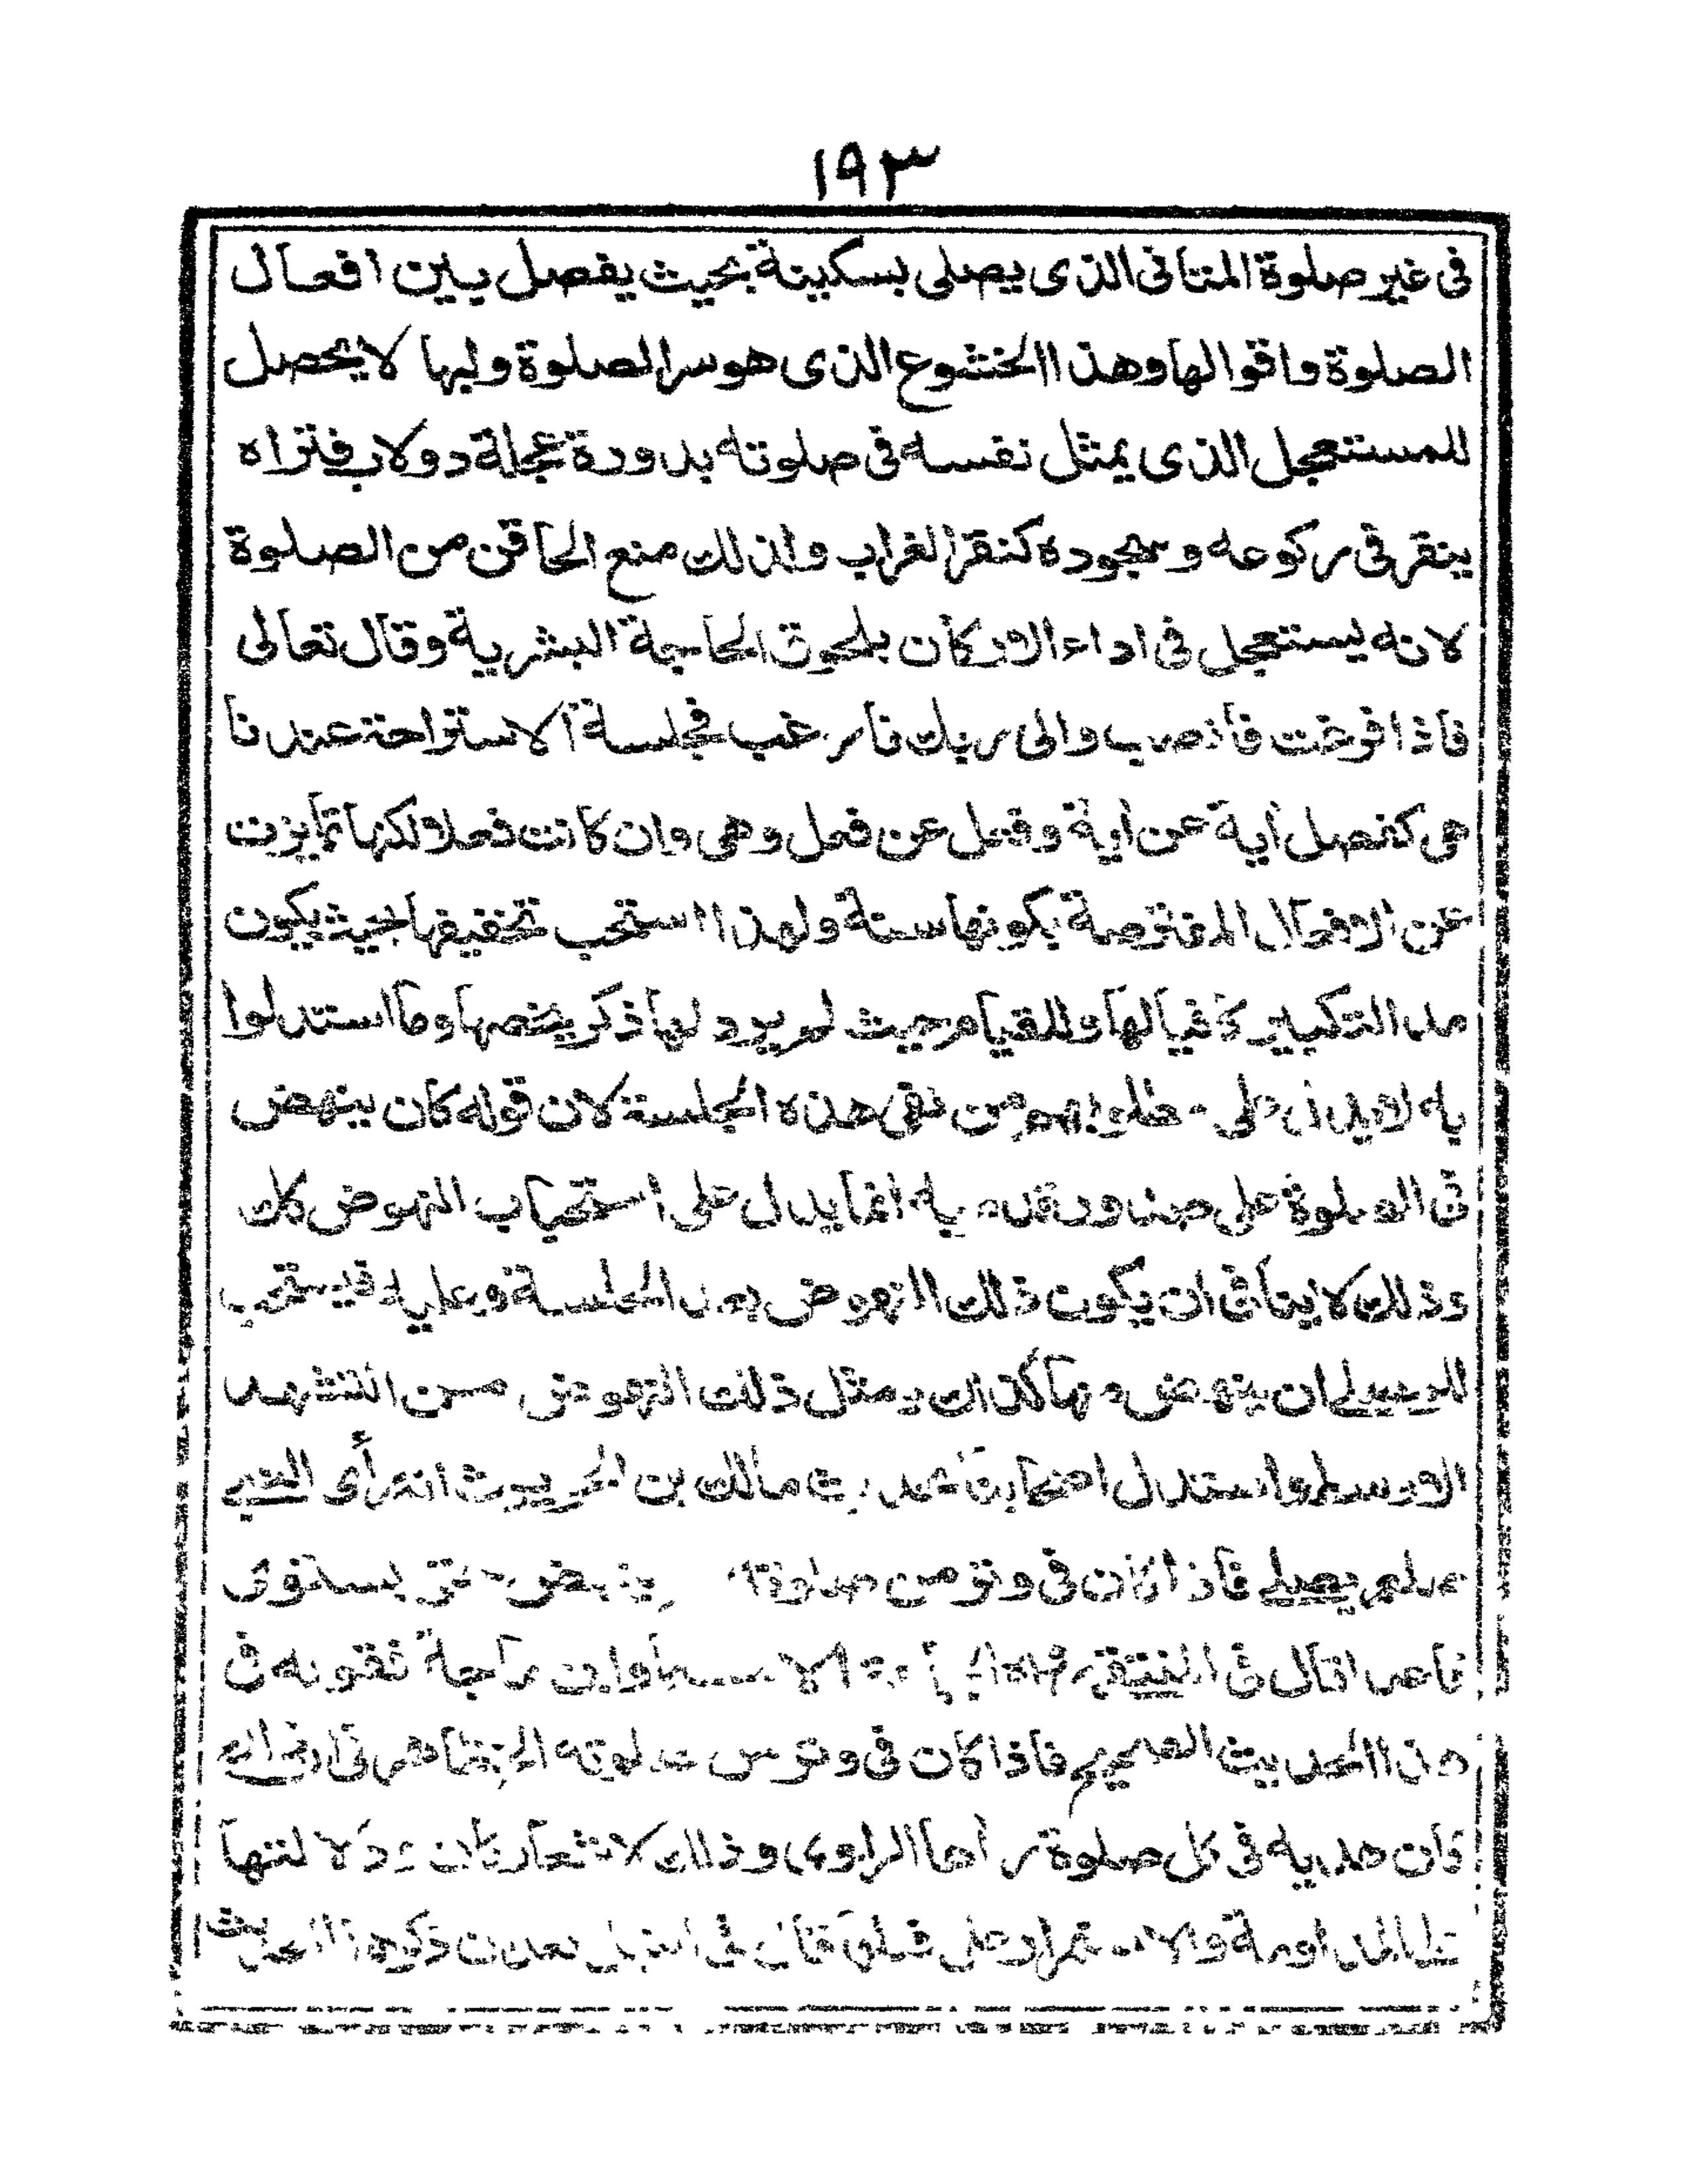 ١٩٣
فى غير صلوة المتانى الذى يصلى بسكينة بحيث يفصل بين افعال
الصلوة واقوالها وهذا الخشوع الذى هو سر الصلوة ولبها لا يحصل
للمستعجل الذى يمثل نفسه فى صلوته بدورة عجلة دولاب فتراه
ينقر فى ركوعه وسجوده كنقر الغراب ولذلك منع الحاقن من الصلوة
لانه ليستعجل فى اداء الاركان بلحوق الحاجة البشرية وقال تعالى
فاذا فرغت فانصب والى ربك فارغب فجلسة الاستراحة عندنا
هى كفصل آية عن آية وفعل عن فعل وهى وان كانت فعلا لكنها تمايزت
عن الافعال المفترضة بكونها سنة ولهذا استحب تخفيفها بحيث يكون
مد التكبير كافيا لها وللقيام حيث لم يرد لها ذكر يخصها وما استدلوا
به لا يدل على مطلوبهم من نفى هذه الجلسة لان قوله كان ينهض
فى الصلوة على صدور قدميه انما يدل على استحباب النهوض كك
وذلك لا ينافى ان يكون ذلك النهوض بعد الجلسة وعليه فيستحب
للمصلى ان ينهض منها كذلك بمثل ذلك النهوض من التشهد
الاوسط واستدل اصحابنا بحديث مالك بن الحويرث انه رأى النبى
صلعم يصلى فاذا كان فى وتر من صلوته لم ينهض حتى يستوى
قاعدا قال فى المنتقى رواه الجماعة الا مسلما وابن ماجة فقوله فى
هذا الحديث الصحيح فاذا كان فى وتر من صلوته الخ ظاهر فى
وان هديه فى كل صلوة رآها الراوى وذلك لاشعار كان دلالتها
على المداومة والاستمرار على قال فى النيل بعد ذكر هذا الحديث